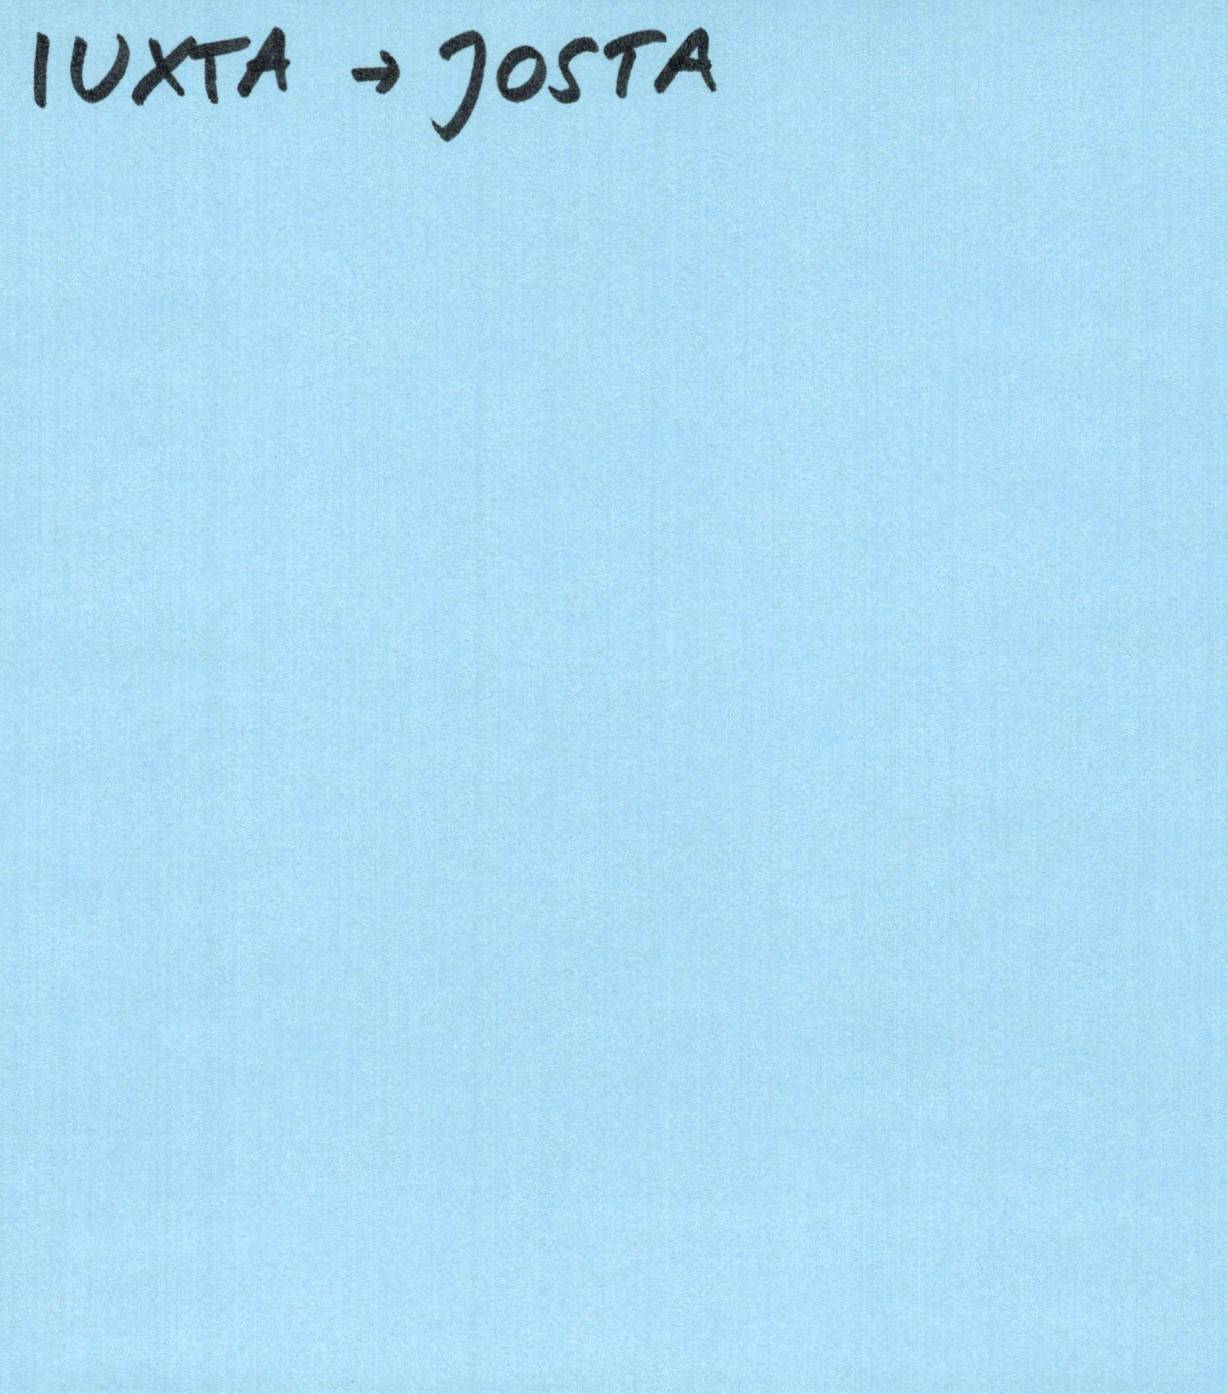 IUXTA → JOSTA